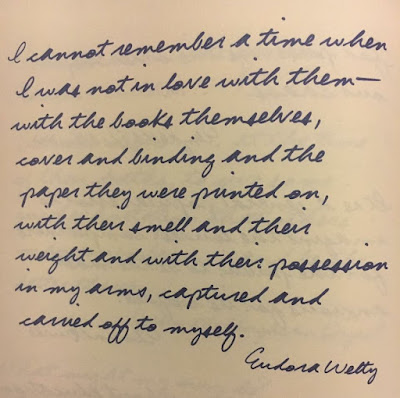 I cannot remember a time when
I was not in love with them—
with the books themselves,
cover and binding and the
paper they were printed on,
with their smell and their
weight and with their possession
in my arms, captured and
carried off to myself.
Eudora Welty